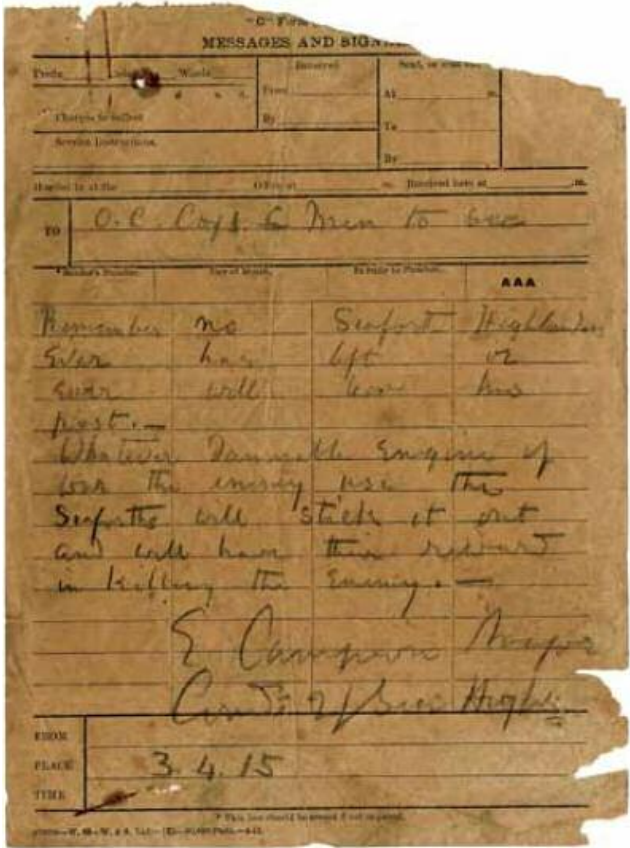 "C" Form
MESSAGES AND SIGN
Prefix Words
Received Sent, or sent out
From
At m.
Charges to collect
By
To
Service Instructions.
By
Handed in at the Office at m. Received here at m.
TO O.C. Coys. & Men to see
* Sender's Number. Day of Month. In reply to Number. AAA
Remember no Seafort Highlander
Ever has left or
ever will leave his
post. —
Whatever Damnable Engine of
war the enemy use the
Seaforths will stick it out
and will have their reward
in killing the Enemy. —
E Campion Major
Comdg 2/Sea Highrs
FROM
PLACE 3.4.15
TIME
* This line should be erased if not required.